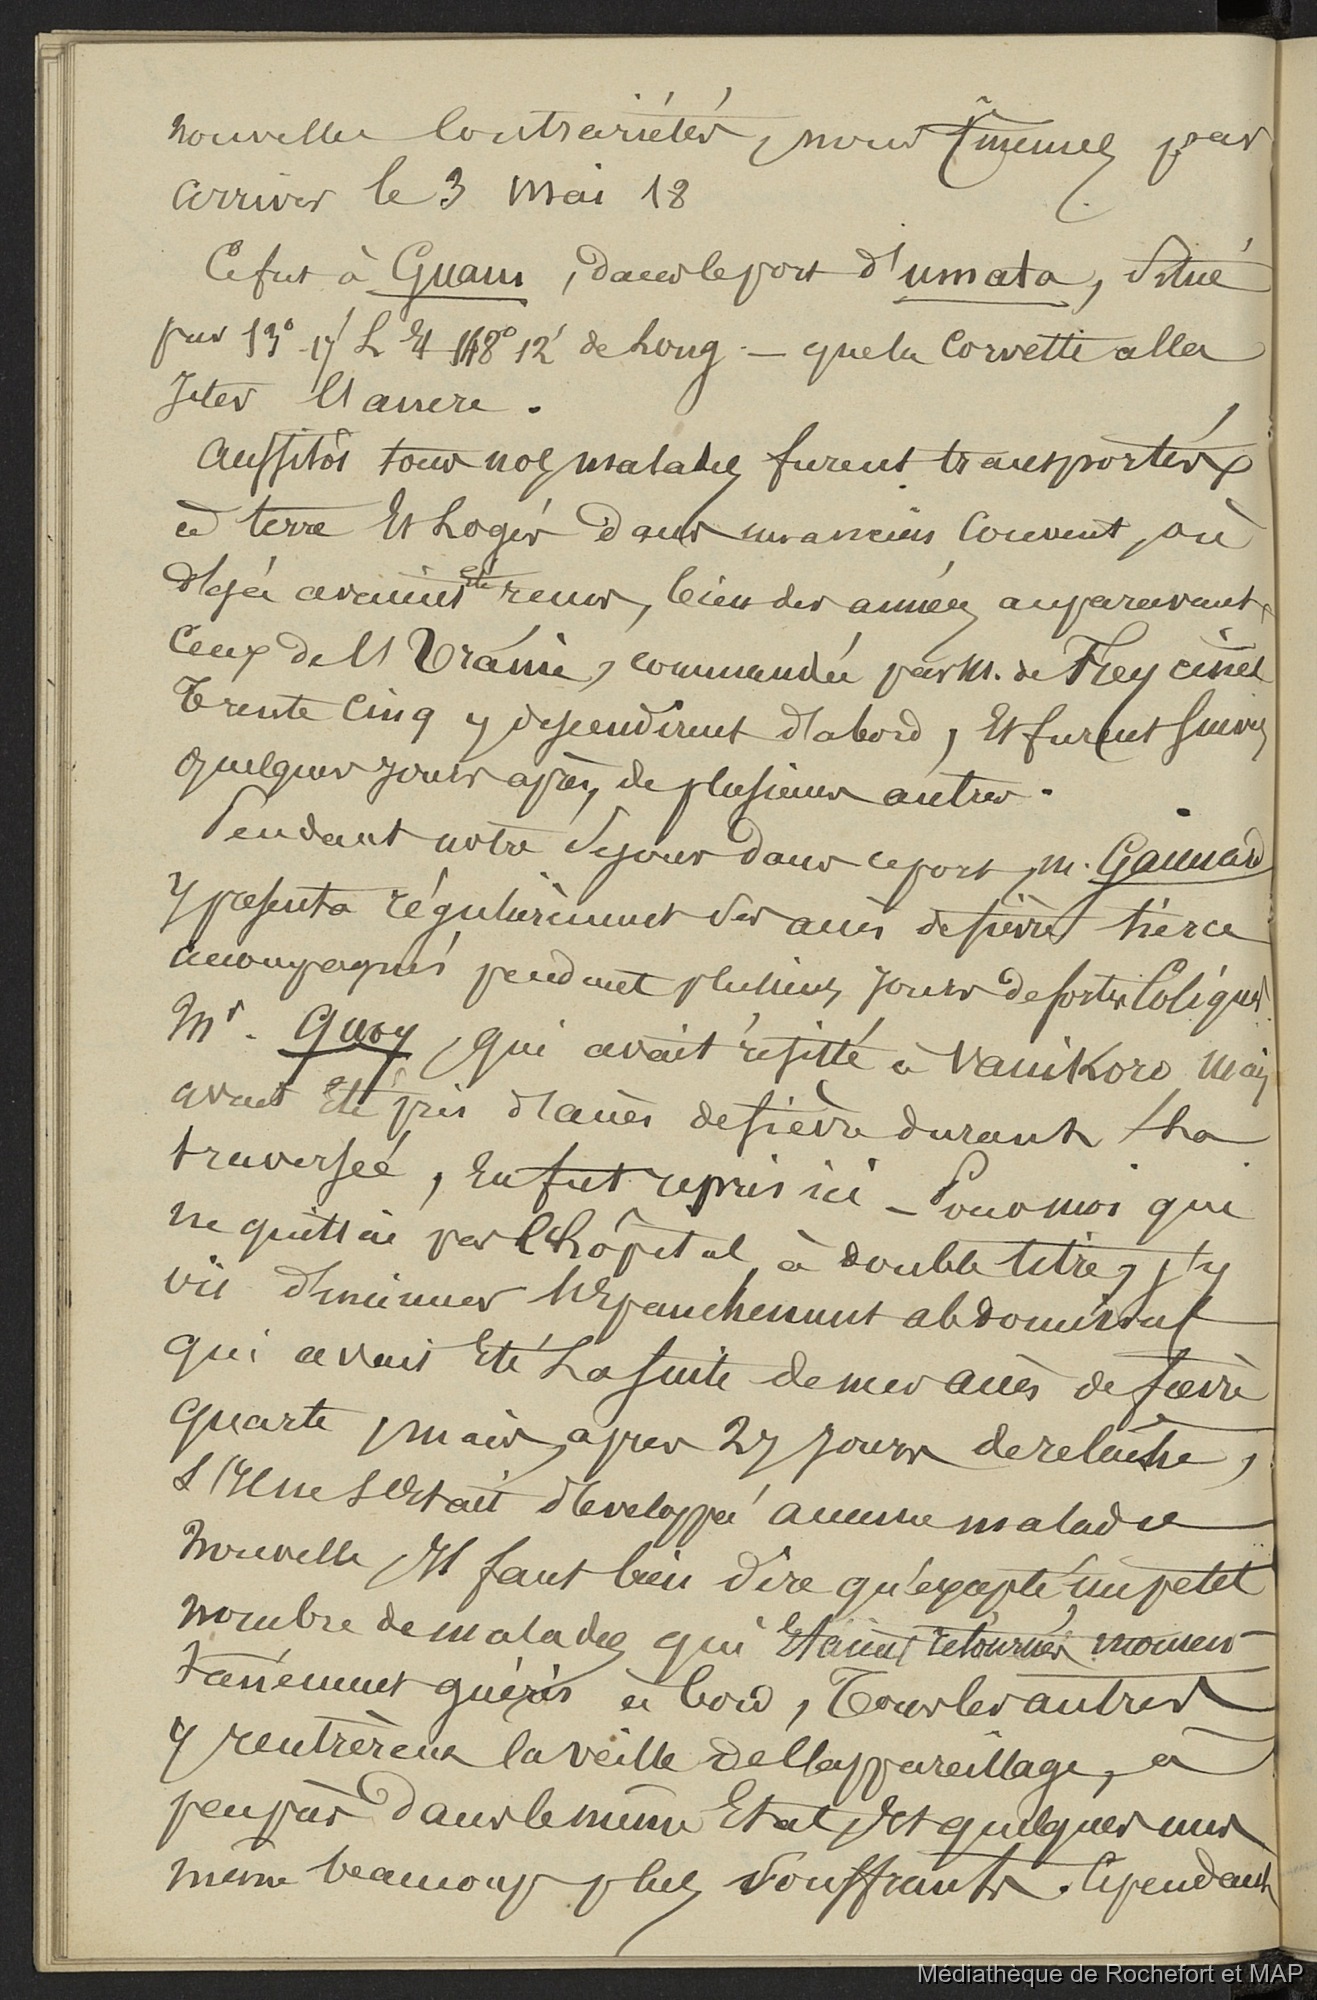 nouvelles contrariétés, nous finîmes par
arriver le 3 mai 18
Ce fut à Guam, dans le port d'umata, situé
par 13° 17' L et 148° 12' de Long. – que la corvette alla
jeter l'ancre.
Aussitôt tous nos malades furent transportés
à terre et Logés dans un ancien couvent, où
déjà avaient été reçus, bien des années auparavant,
ceux de l'Uranie, commandée par M. de Freycinet
Trente cinq y descendirent d'abord, et furent suivis
quelques jours après, de plusieurs autres.
Pendant notre séjour dans ce port, M. Gaimard
y présenta régulièrement des accès de fièvre tierce
accompagnés pendant plusieurs jours de fortes Coliques.
Mr. Quoy, qui avait résisté à Vanikoro mais
avait été pris d'accès de fièvre durant la
traversée, en fut repris ici – Pour moi qui
ne quittai pas l'hôpital, à double titre, j'y
vis diminuer l'épanchement abdominal
qui avait été La suite de mes accès de fièvre
quarte, mais, après 27 jours de relâche,
s'il ne s'était développé aucune maladie
nouvelle, Il faut bien dire qu'excepté un petit
nombre de malades qui étaient retournés momen-
tanément guéris à bord, Tous les autres
y rentrèrent la veille de l'appareillage, à
peu près dans le même état, et quelques uns
même beaucoup plus souffrants. Cependant
Médiathèque de Rochefort et MAP